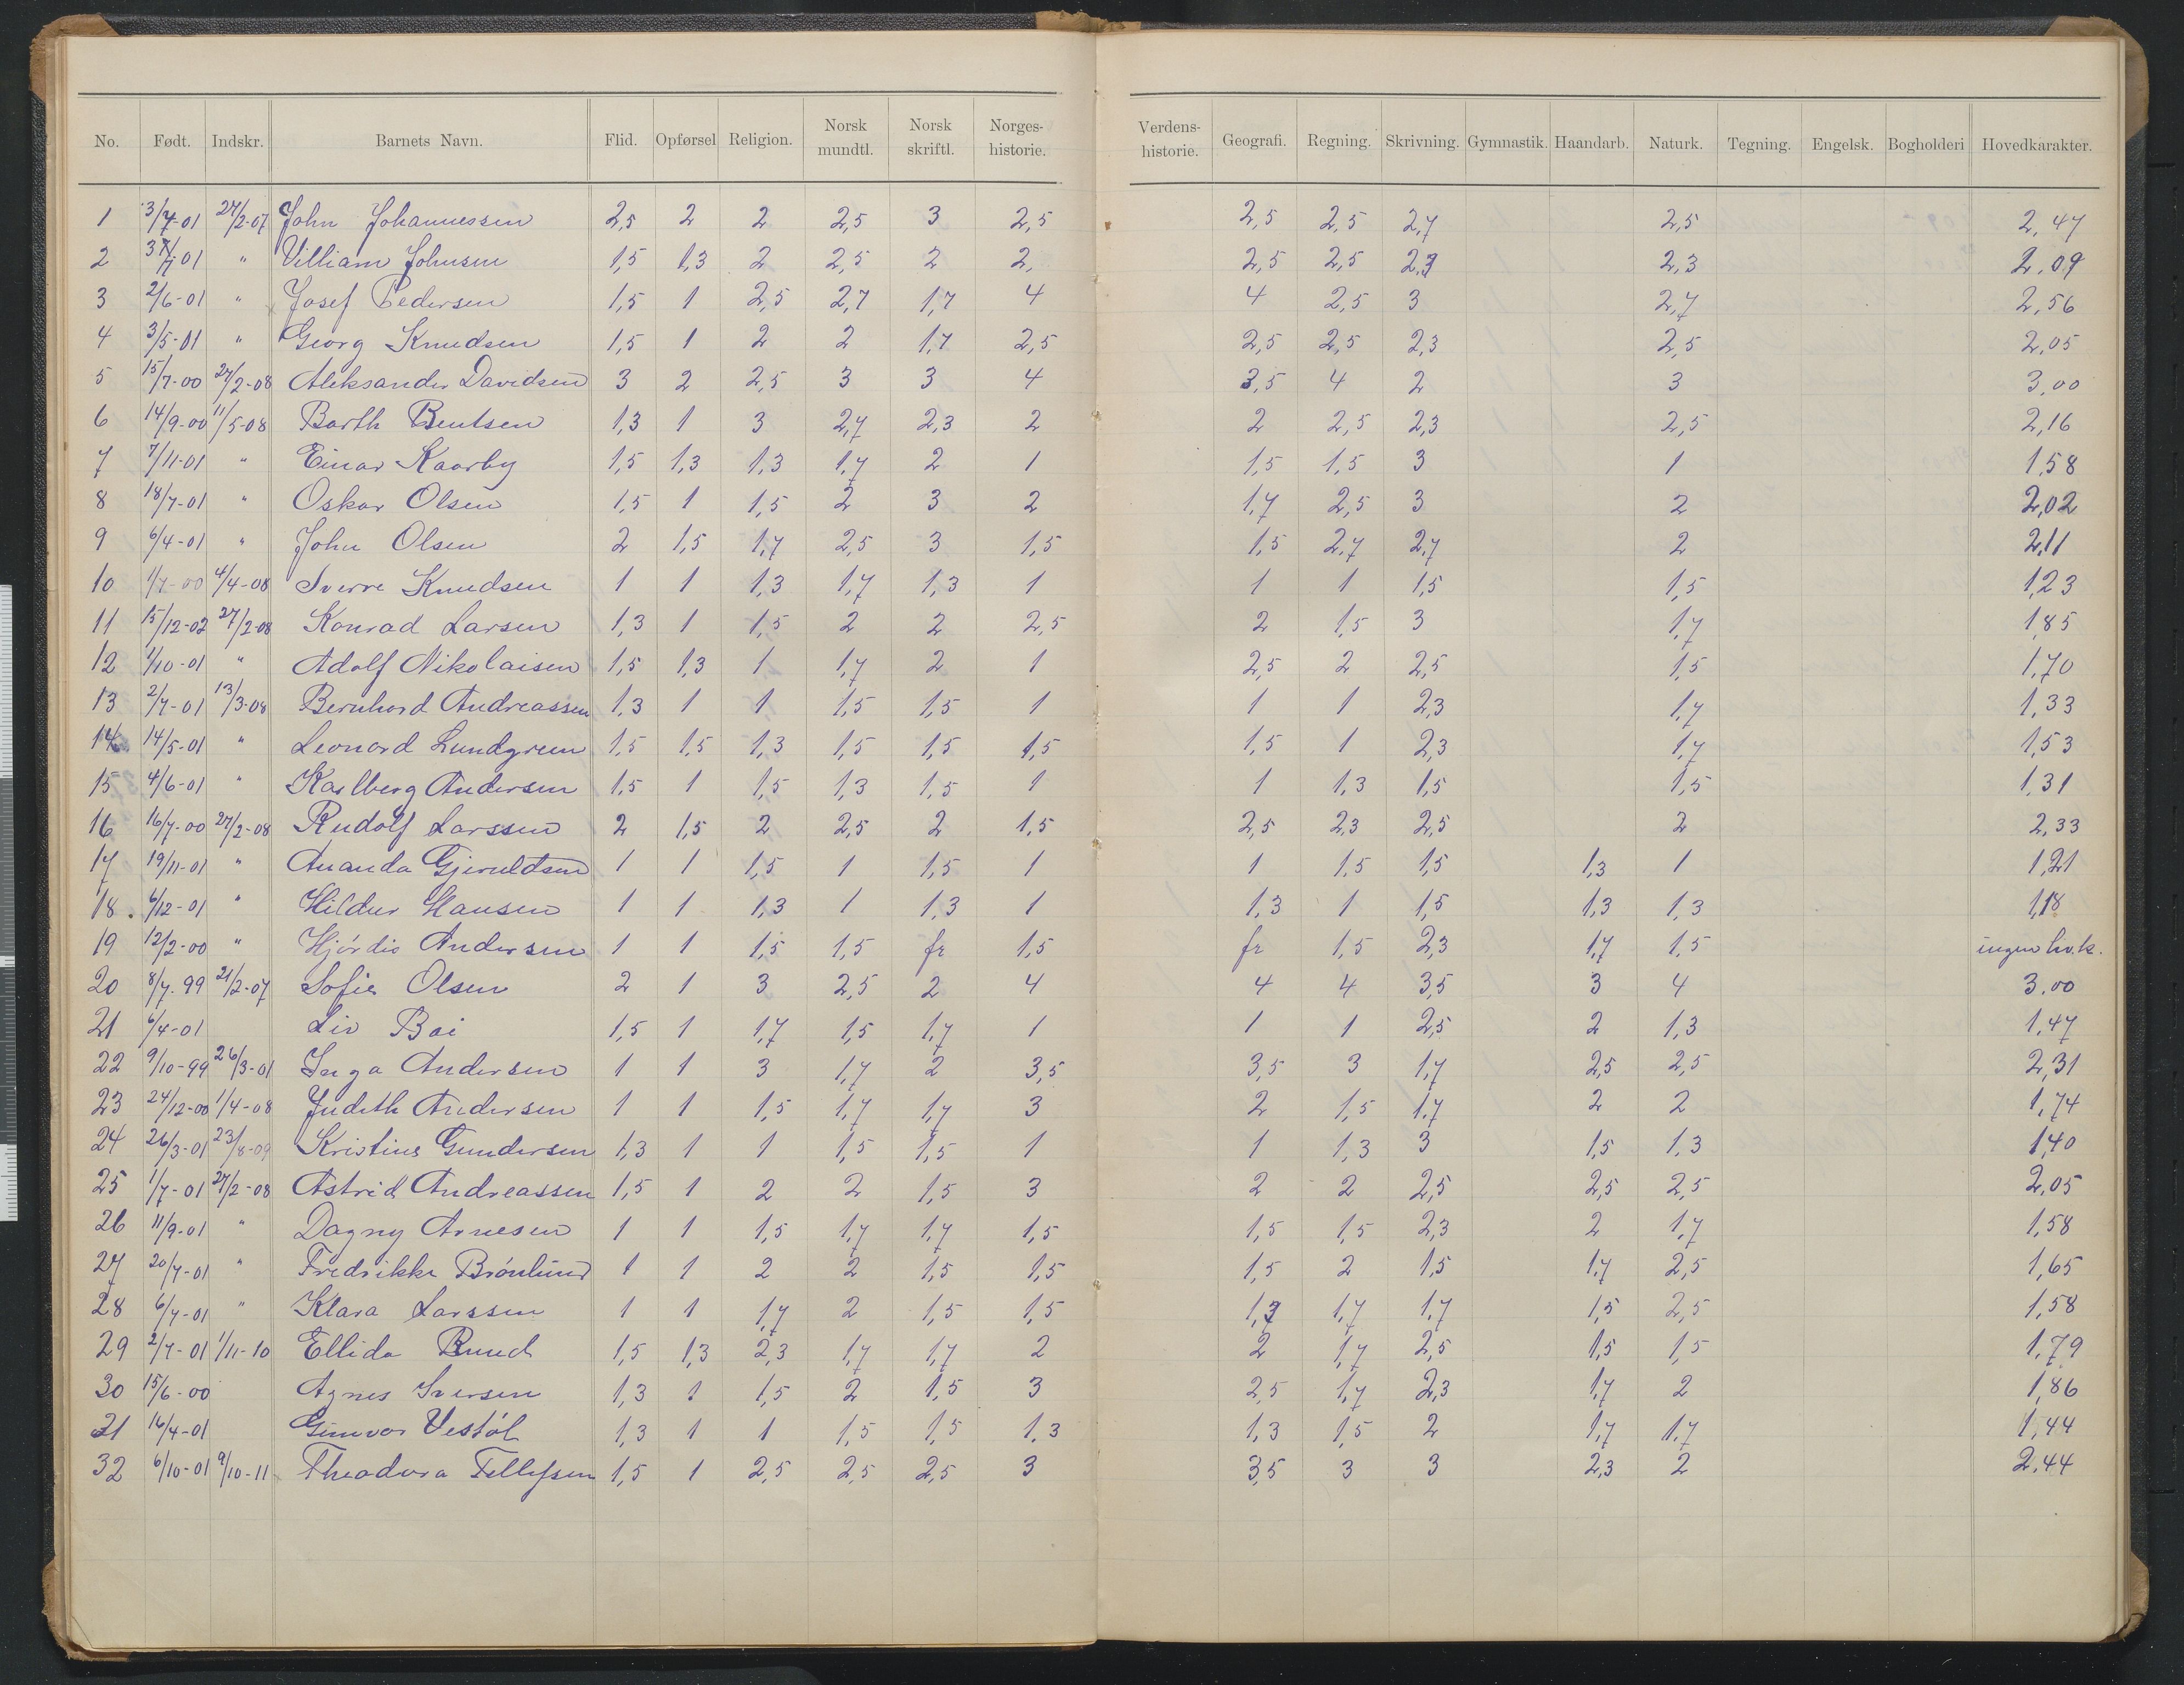 No. Født. Indskr. Barnets Navn. Flid. Opførsel Religion. Norsk mundtl. Norsk skriftl. Norges-historie. Verdens-historie. Geografi. Regning. Skrivning. Gymnastik. Haandarb. Naturk. Tegning. Engelsk. Bogholderi Hovedkarakter.
1 3/7-01 27/2-07 John Johannessen 2,5 2 2 2,5 3 2,5 2,5 2,5 2,7 2,5 2,47
2 01 " Villiam Johnsen 1,5 1,3 2 2,5 2 2, 2,5 2,5 2,3 2,09
3 2/6-01 " Josef Pedersen 1,5 1 2,5 2,7 1,7 4 4 2,5 3 2,7 2,56
4 3/5-01 " Georg Knudsen 1,5 1 2 2 1,7 2,5 2,5 2,5 2,3 2,5 2,05
5 15/7-00 27/2-08 Aleksander Davidsen 3 2 2,5 3 3 4 3,5 4 2 3 3,00
6 14/9-00 11/5-08 Barth Bentsen 1,3 1 3 2,7 2,3 2 2 2,5 2,3 2,5 2,16
7 7/11-01 " Einar Kaarby 1,5 1,3 1,3 1,7 2 1 1,5 1,5 3 1 1,58
8 18/7-01 " Oskar Olsen 1,5 1 1,5 2 3 2 1,7 2,5 3 2 2,02
9 6/4-01 " John Olsen 2 1,5 1,7 2,5 3 1,5 1,5 2,7 2,7 2 2,11
10 1/7-00 4/4-08 Sverre Knudsen 1 1 1,3 1,7 1,3 1 1 1 1,5 1,5 1,23
11 15/12-02 27/2-08 Konrad Larsen 1,3 1 1,5 2 2 2,5 2 1,5 3 1,7 1,85
12 1/10-01 " Adolf Nikolaisen 1,5 1,3 1 1,7 2 1 2,5 2 2,5 1,5 1,70
13 2/7-01 13/3-08 Bernhard Andreassen 1,3 1 1 1,5 1,5 1 1 1 2,3 1,7 1,33
14 14/5-01 " Leonard Lundgren 1,5 1,5 1,3 1,5 1,5 1,5 1,5 1 2,3 1,7 1,53
15 4/6-01 " Karlberg Andersen 1,5 1 1,5 1,3 1,5 1 1 1,3 1,5 1,5 1,31
16 16/7-00 27/2-08 Rudolf Larssen 2 1,5 2 2,5 2 1,5 2,5 2,3 2,5 2 2,33
17 19/11-01 " Ananda Gjeruldsen 1 1 1,5 1 1,5 1 1 1,5 1,5 1,3 1 1,21
18. 6/12-01 " Hildur Hansen 1 1 1,3 1 1,3 1 1,3 1 1,5 1,3 1,3 1,18
19 12/2-00 " Hjördis Andersen 1 1 1,5 1,5 fr 1,5 fr 1,5 2,3 1,7 1,5 ingen hv.k.
20 8/7-99 21/2-07 Sofie Olsen 2 1 3 2,5 2 4 4 4 3,5 3 4 3,00
21 6/4-01 Liv Boi 1,5 1 1,7 1,5 1,7 1 1 1 2,5 2 1,3 1,47
22 9/10-99 26/3-01 Inga Andersen 1 1 3 1,7 2 3,5 3,5 3 1,7 2,5 2,5 2,31
23 24/12-00 1/4-08 Judith Andersen 1 1 1,5 1,7 1,7 3 2 1,5 1,7 2 2 1,74
24 26/3-01 23/8-09 Kristine Gundersen 1,3 1 1 1,5 1,5 1 1 1,3 3 1,5 1,3 1,40
25 1/7-01 27/2-08 Astrid Andreassen 1,5 1 2 2 1,5 3 2 2 2,5 2,5 2,5 2,05
26 11/9-01 " Dagny Arnesen 1 1 1,5 1,7 1,7 1,5 1,5 1,5 2,3 2 1,7 1,58
27 20/7-01 " Fredrikke Brönlund 1 1 2 2 1,5 1,5 1,5 2 1,5 1,7 2,5 1,65
28 6/7-01 " Klara Larssen 1 1 1,7 2 1,5 1,5 1,7 1,7 1,5 2,5 1,58
29 2/7-01 1/11-10 Ellida Ruud 1,5 1,3 2,3 1,7 1,7 2 2 1,7 2,5 1,5 1,5 1,79
30 15/6-00 Agnes Iversen 1,3 1 1,5 2 1,5 3 2,5 1,7 2,3 1,7 2 1,86
31 16/4-01 Gunvor Vestöl 1,3 1 1 1,5 1,5 1,3 1,3 1,5 2 1,7 1,7 1,44
32 6/10-01 9/10-11 Theodora Tellefsen 1,5 1 2,5 2,5 2,5 3 3,5 3 3 2,3 2 2,44